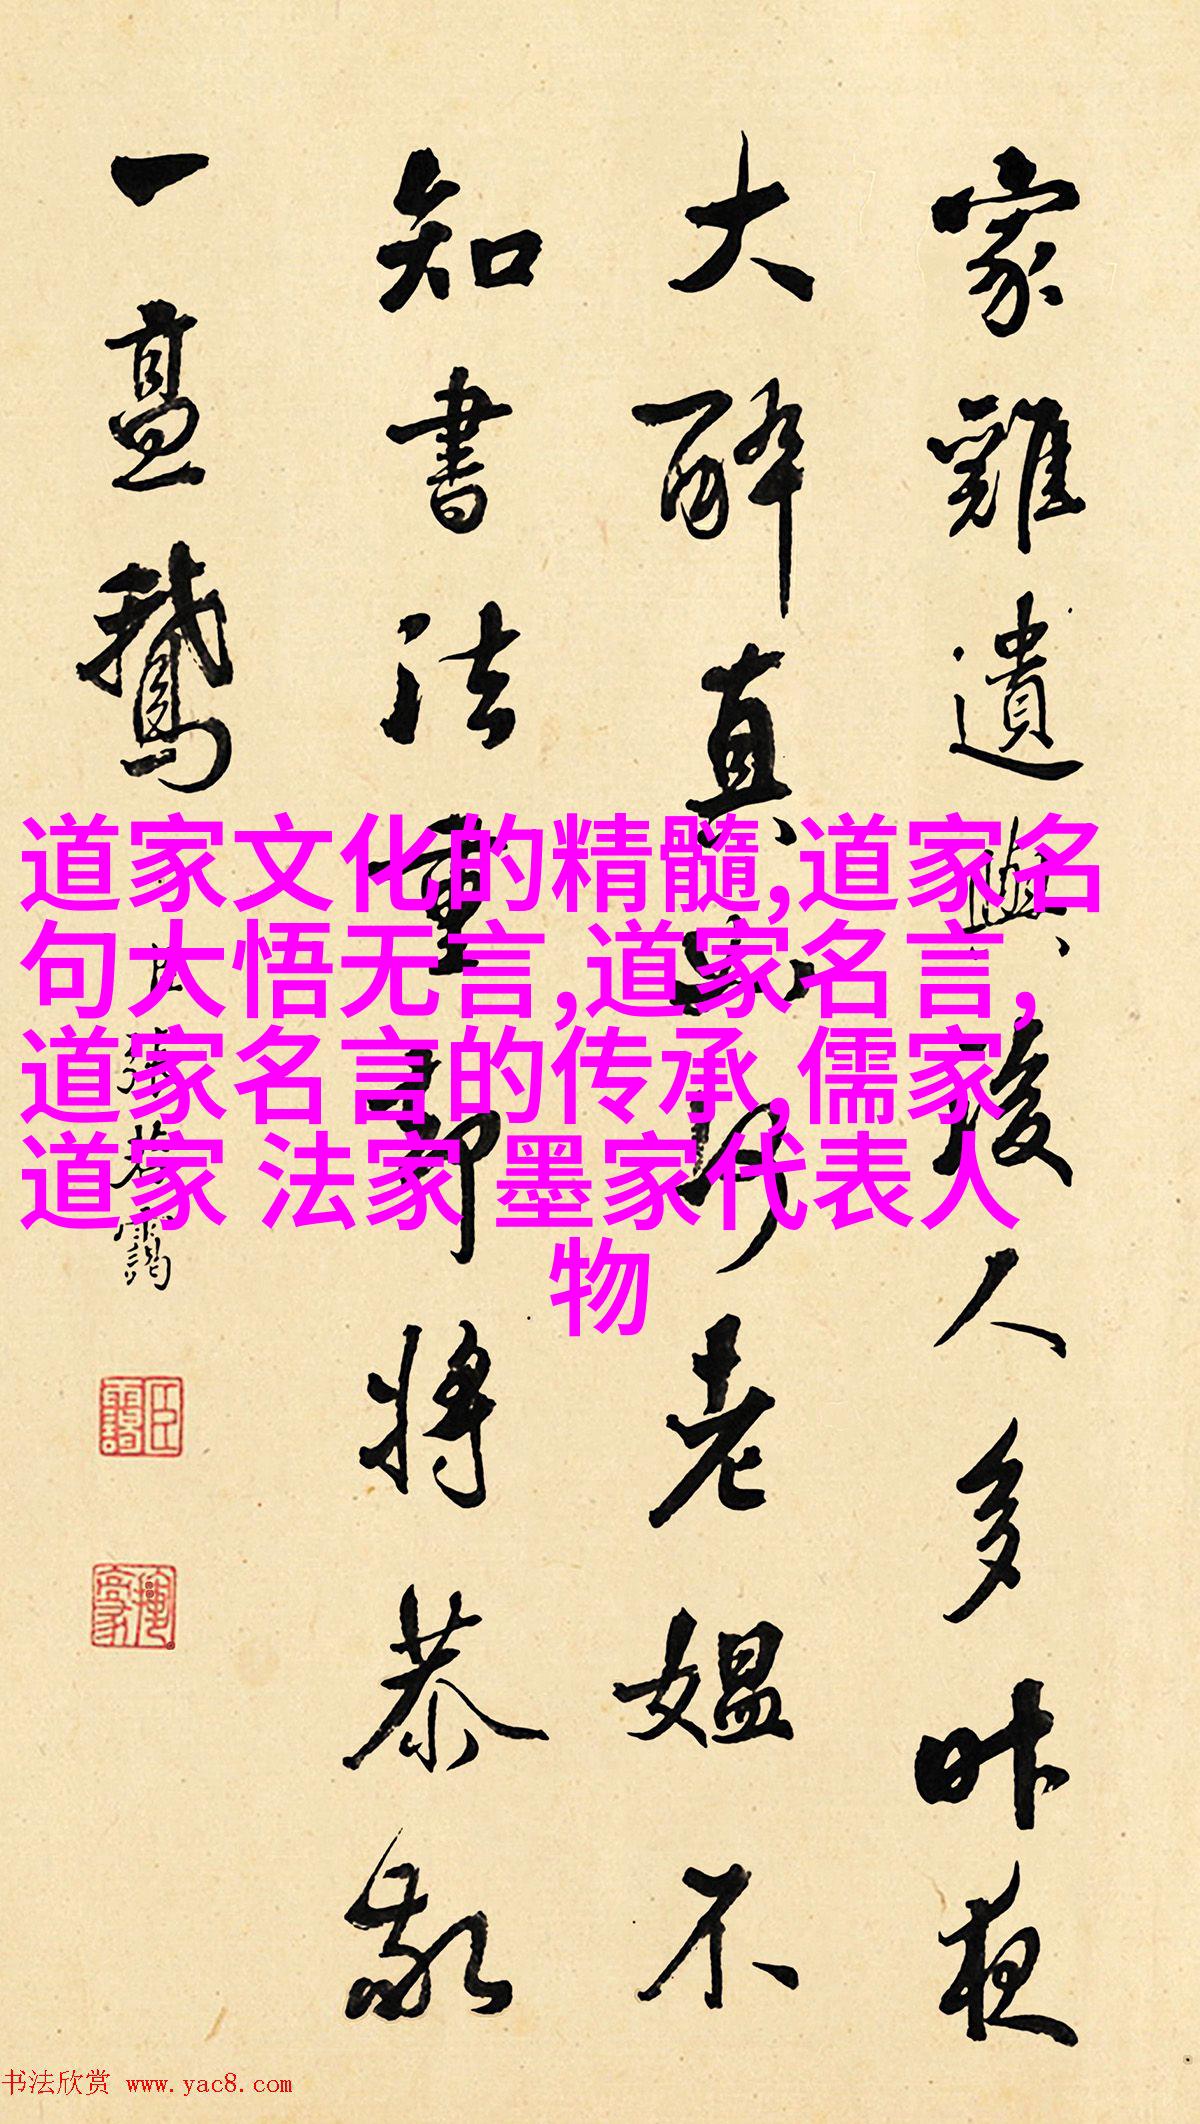 家雞遺與後人多昨夜
大醉老媼不
知書法重即將恭敬
一鵝
臣張若靄
道家文化的精髓,道家名
句大悟无言,道家名言,
道家名言的传承,儒家
道家 法家 墨家代表人
物
书法欣赏 www.yac8.com